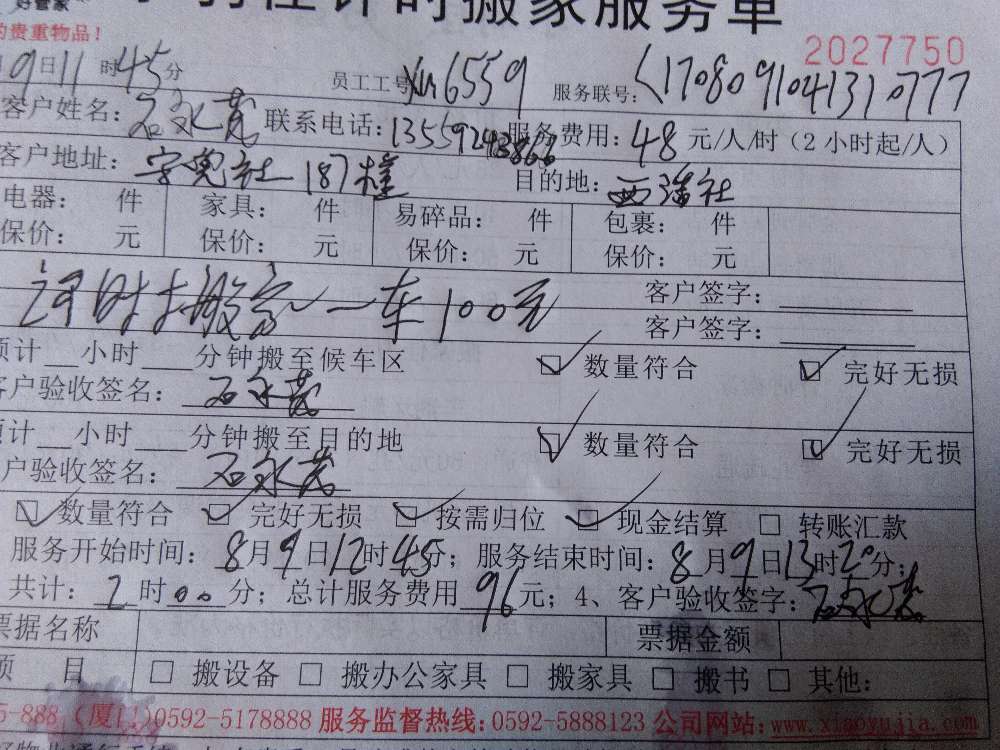 好管家
计时搬家服务单
的贵重物品！
2027750
9日11时45分 员工工号 6559 服务联号：170809104131077７
客户姓名：石永茂 联系电话：13559243866 服务费用：48元/人/时（2小时起/人）
客户地址：字兜社187幢 目的地：西潘社
电器： 件 家具： 件 易碎品： 件 包裹： 件
保价： 元 保价： 元 保价： 元 保价： 元
计时搬家一车100元 客户签字：
客户签字：
预计 小时 分钟搬至候车区 数量符合 完好无损
客户验收签名：石永茂
预计 小时 分钟搬至目的地 数量符合 完好无损
客户验收签名：石永茂
数量符合 完好无损 按需归位 现金结算 转账汇款
服务开始时间：8月9日12时45分；服务结束时间：8月9日13时20分；
共计：2时00分；总计服务费用96元；4、客户验收签字：石永茂
票据名称 票据金额
项 目 搬设备 搬办公家具 搬家具 搬书 其他：
5-888（厦门）0592-5178888 服务监督热线：0592-5888123 公司网站：www.xiaoyujia.com